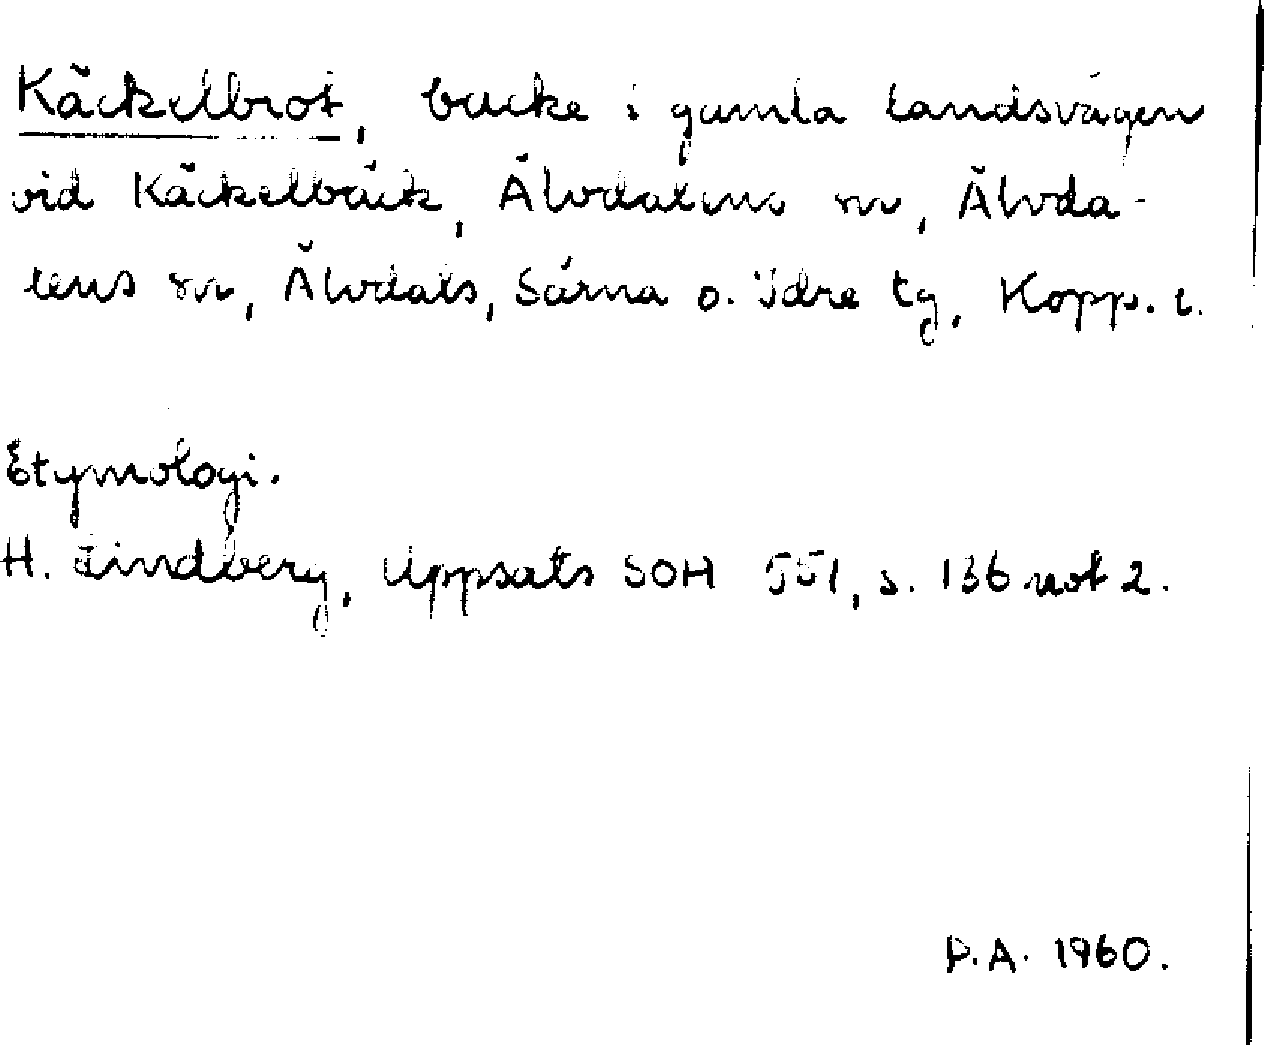 Käckelbrot, backe i gamla landsvägen
vid Käckelbäck, Älvdalens sn, Älvda-
lens sn, Älvdals, Särna o. Idre tg, Kopp. l.
Etymologi.
H. Lindberg, Uppsats SOH 551, s. 136 not 2.
P.A. 1960.